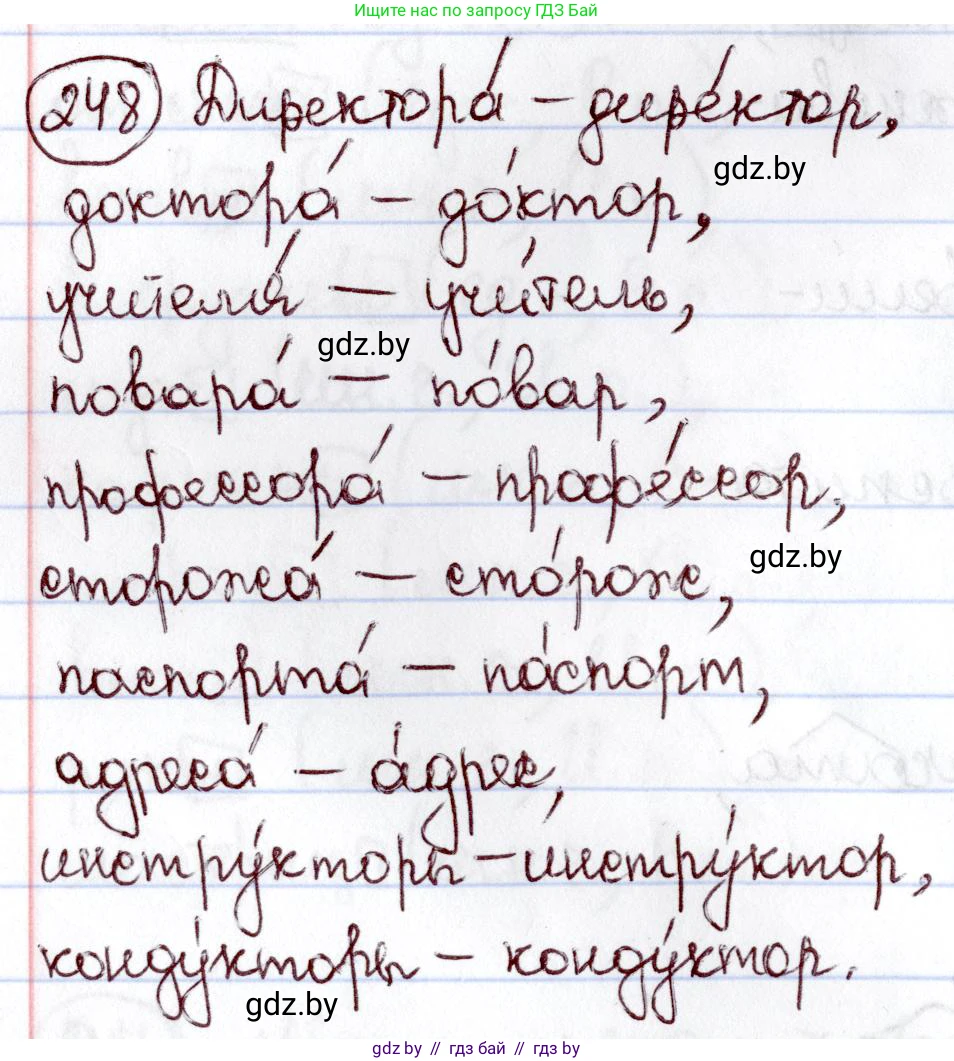 Ищите нас по запросу ГДЗ Бай
248 Директора́ – дире́ктор,
gdz.by
доктора́ – до́ктор,
учителя́ – учи́тель,
gdz.by
повара́ – по́вар,
профессора́ – профе́ссор,
gdz.by
сторожа́ – сто́рож,
паспорта́ – па́спорт,
адреса́ – а́дрес,
инстру́кторы – инстру́ктор,
конду́кторы – конду́ктор.
gdz.by
gdz.by // гдз бай // гдз by